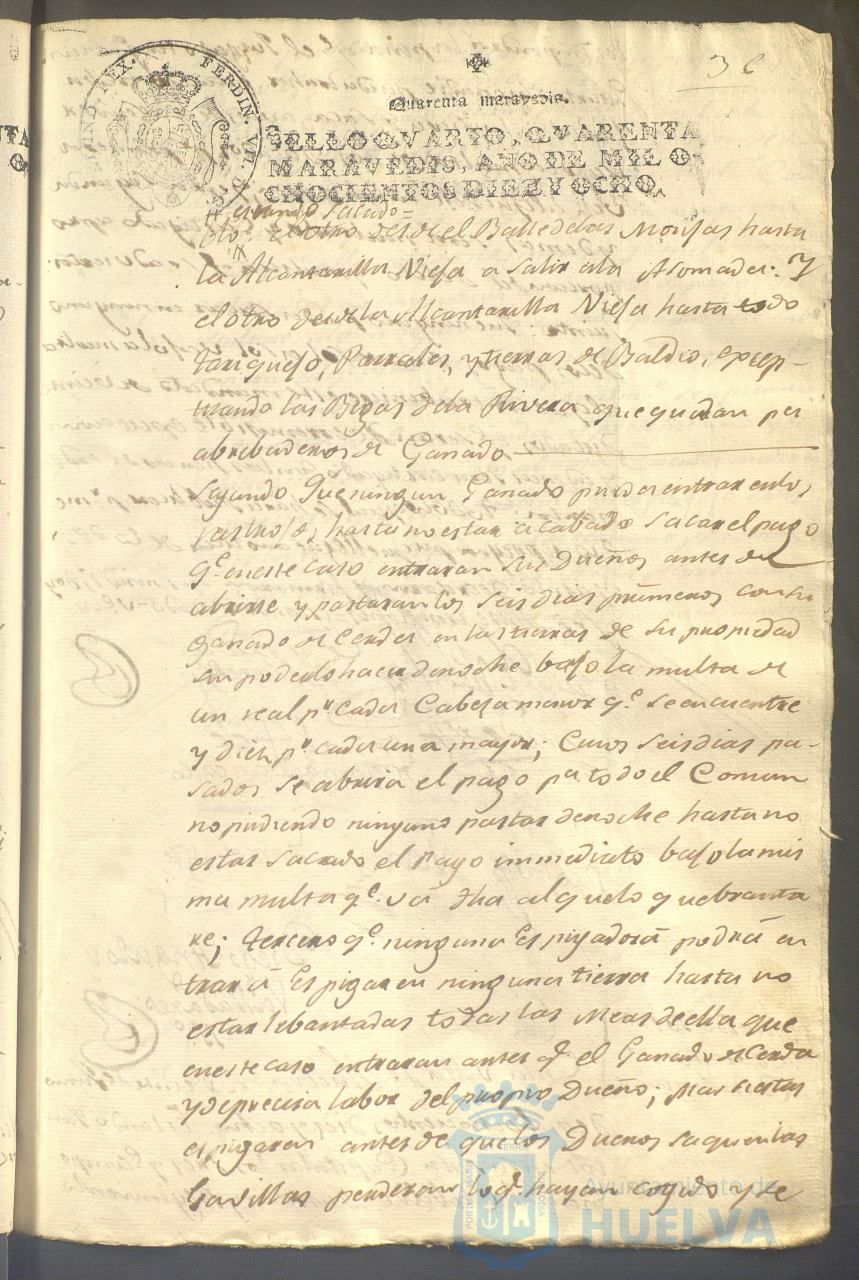 36
HISPANIAR. REX. FERDIN. VII. D. G.
Quarenta maravedis.
SELLO QVARTO, QVARENTA
MARAVEDIS, AÑO DE MIL O-
CHOCIENTOS DIEZ Y OCHO.
estando sacado =
el otro desde el Balle delas Monjas hasta
la Alcantarilla Nieja a salir ala Asomada: Y
el otro desde la Alcantarilla Nieja hasta todo
tariquejo, Parrales, y tierras de Baldio, excep-
tuando las Begas dela Rivera que quedan por
abrebaderos de Ganado
Que ningun Ganado pueda entrar en los
rastrojos, hasta no estar acabado sacar el pago
q.e en este caso entraran sus Dueños antes de
abrirse y pastaran los seis dias primeros con su
ganado de Cerda en las tierras de su propiedad
sin poderlo hacer de noche bajo la multa de
un real p.r cada Cabeza menor q.e se encuentre
y diez p.r cada una mayor; Cuios seis dias pa-
sados se abrira el pago pa todo el Comun
no pudiendo ninguno pastar de noche hasta no
estar sacado el Pago immediato bajo la mis
ma multa q.e vá dha al que lo quebranta
re; tercero q.e ninguna Espigadora podrá en
trar á Espigar en ninguna tierra hasta no
estar lebantadas todas las Meas de ella que
en este caso entraran antes q.e el Ganado de Cerda
y de precisa labor del propio Dueño; Mas si estas
espigaren antes de que los Duenos saquen las
Gavillas perderan lo q.e hayan cogido y se
Ayuntamiento de
HUELVA